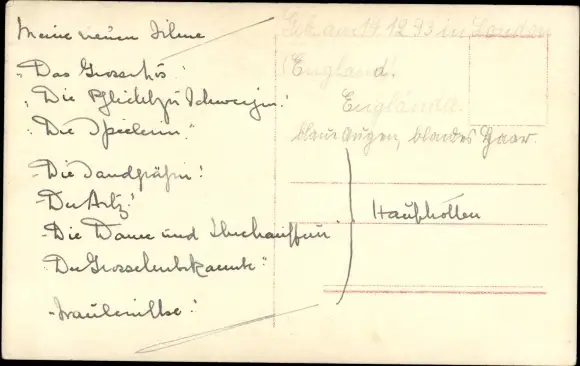 Meine neuen Filme
"Das Grosse
"Die Pflicht zu schweigen!
"Die Spielerin"
"Die Landgräfin!
"Der Arzt!
"Die Dame und
"Der Grosse Unbekannte"
"Fräulein Else!
Geb. am 17. 12 93 in London
(England).
Englands.
blaue Augen, blondes Haar.
Hauptrollen